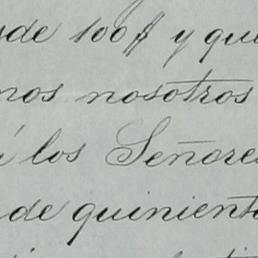 sde 100$ y qui
mos nosotros
á los Señores
de quinient